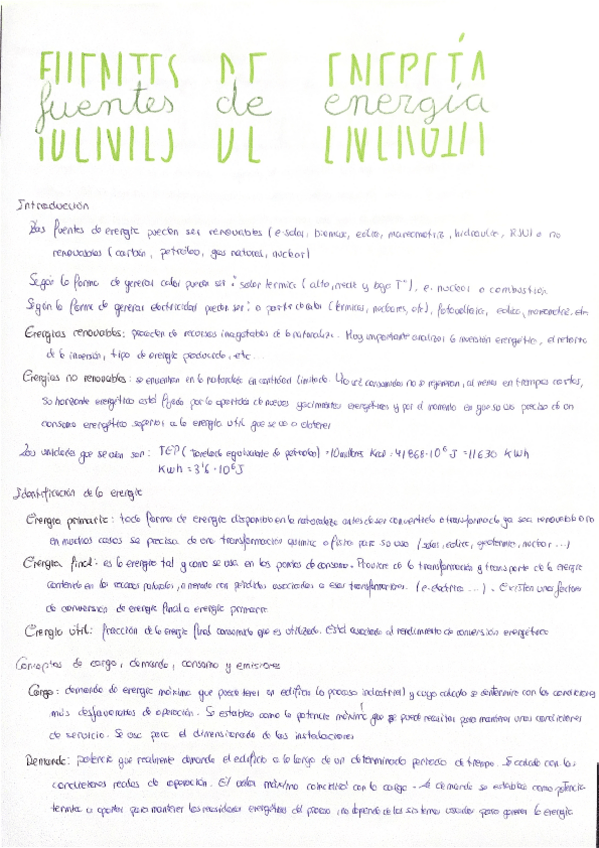 fuentes de energía
Introducción
Las fuentes de energía pueden ser renovables (e. solar, biomasa, eolica, mareomotriz, hidraulica, RSU) o no
renovables (carbón, petróleo, gas natural, nuclear)
Según la forma de generar calor pueden ser: solar termica (alta, media y baja Tª), e. nuclear o combustión
Según la forma de generar electricidad pueden ser: a partir de calor (termicas, nucleares, etc), fotovoltaica, eolica, mareomotriz, etc
Energias renovables: proceden de recursos inagotables de la naturaleza. Muy importante analizar la inversión energética, el retorno
de la inversión, tipo de energía producida, etc...
Energias no renovables: se encuentran en la naturaleza en cantidad limitada. Una vez consumidas no se regeneran, al menos en tiempos cortos,
Su horizonte energético está fijado por la aportación de nuevos yacimientos energéticos y por el momento en que se precise de un
consumo energético superior a la energía util que se va a obtener
Las unidades que se usan son: TEP (tonelada equivalente de petroleo) = 10 millons Kcal = 41868·10⁶ J = 11630 KWh
KWh = 3'6·10⁶ J
Identificación de la energía
Energia primaria: toda forma de energía disponible en la naturaleza antes de ser convertida o transformada ya sea renovable o no
en muchos casos se precisa de una transformación quimica o fisica para su uso (solar, eolica, geotermica, nuclear...)
Energia final: es la energía tal y como se usa en los puntos de consumo. Proviene de la transformación y transporte de la energía
contenida en los recursos naturales, a menudo con pérdidas asociadas a esas transformaciones. (e. electrica ...). Existen unos factores
de conversión de energía final a energía primaria.
Energia útil: fracción de la energía final consumida que es utilizada. Está asociada al rendimiento de conversión energética
Conceptos de carga, demanda, consumo y emisiones
Carga: demanda de energía máxima que puede tener un edificio (o proceso industrial) y cuyo calculo se determina con las condiciones
más desfavorables de operación. Se establece como la potencia máxima que se puede necesitar para mantener unas condiciones
de servicio. Se usa para el dimensionado de las instalaciones
Demanda: potencia que realmente demanda el edificio a lo largo de un determinado periodo de tiempo. Se calcula con las
condiciones reales de operación. El valor máximo coincidirá con la carga. La demanda se establece como potencia
termica a aportar para mantener las necesidades energéticas del proceso, no depende de los sistemas usados para generar la energía